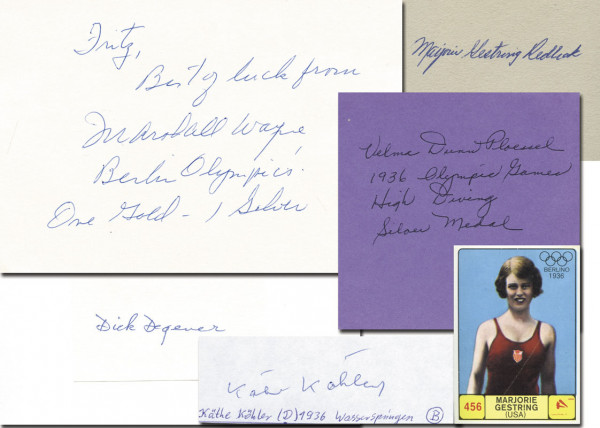 Fritz,
Best of luck from
Marshall Wayne
Berlin Olympics!
One Gold - 1 Silver
Marjorie Gestring Redlick
Velma Dunn Ploessel
1936 Olympic Games
High Diving
Silver Medal
Dick Degener
Käthe Köhler
Käthe Köhler (D) 1936 Wasserspringen B
BERLINO
1936
456
MARJORIE
GESTRING
(USA)